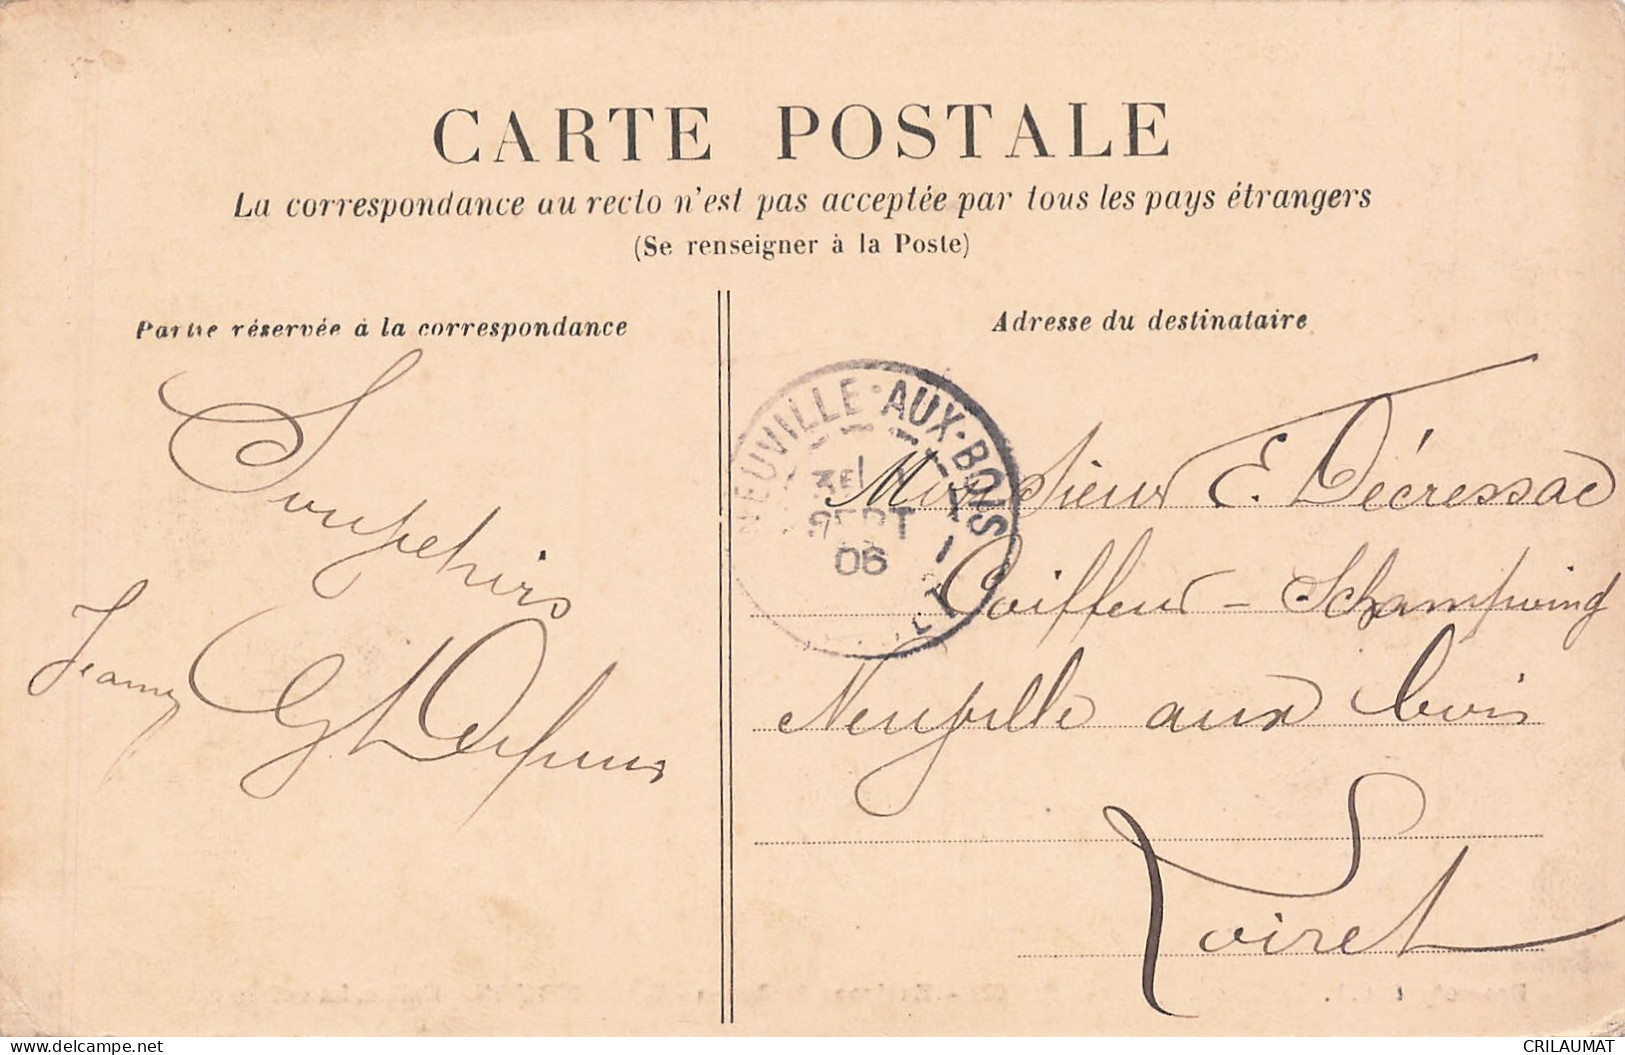 CARTE POSTALE
La correspondance au recto n'est pas acceptée par tous les pays étrangers
(Se renseigner à la Poste)
Partie réservée à la correspondance
Adresse du destinataire
NEUVILLE-AUX-BOIS
3E
SEPT
06
LOIRET
Monsieur E. Décressac
Coiffeur - Schampoing
Neuville aux bois
Loiret
Jeanne
CRILAUMAT